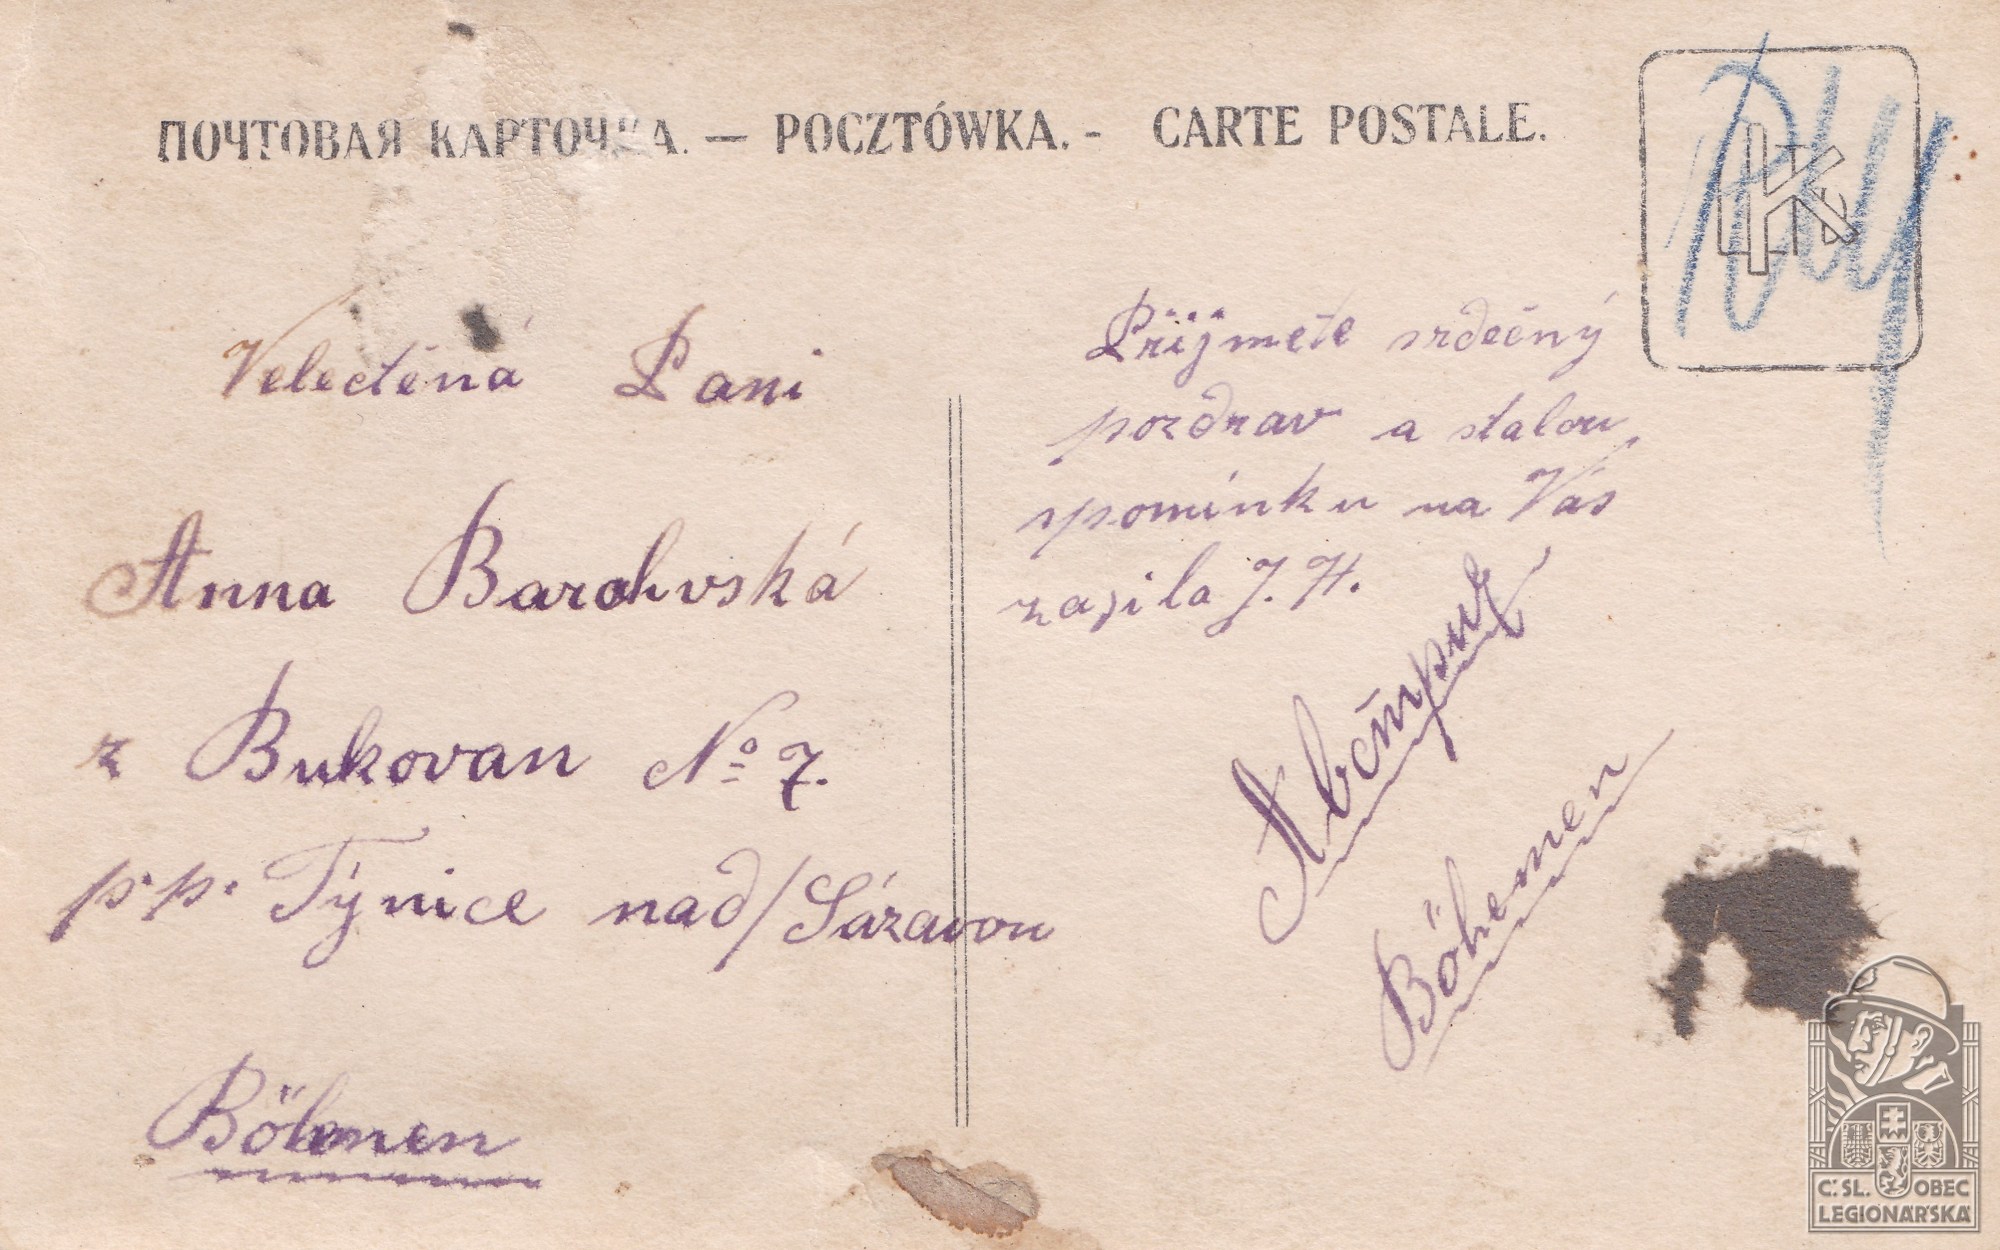 ПОЧТОВАЯ КАРТОЧКА. — POCZTÓWKA. - CARTE POSTALE.
Velectěná Pani
Anna Barohvská
z Bukovan No 7.
p. p. Týnice nad/Sázavou
Böhmen
Přijmete srdečný
pozdrav a stalou
spominku na Vás
zasila J. H.
Böhmen
Č. SL. OBEC
LEGIONÁŘSKÁ